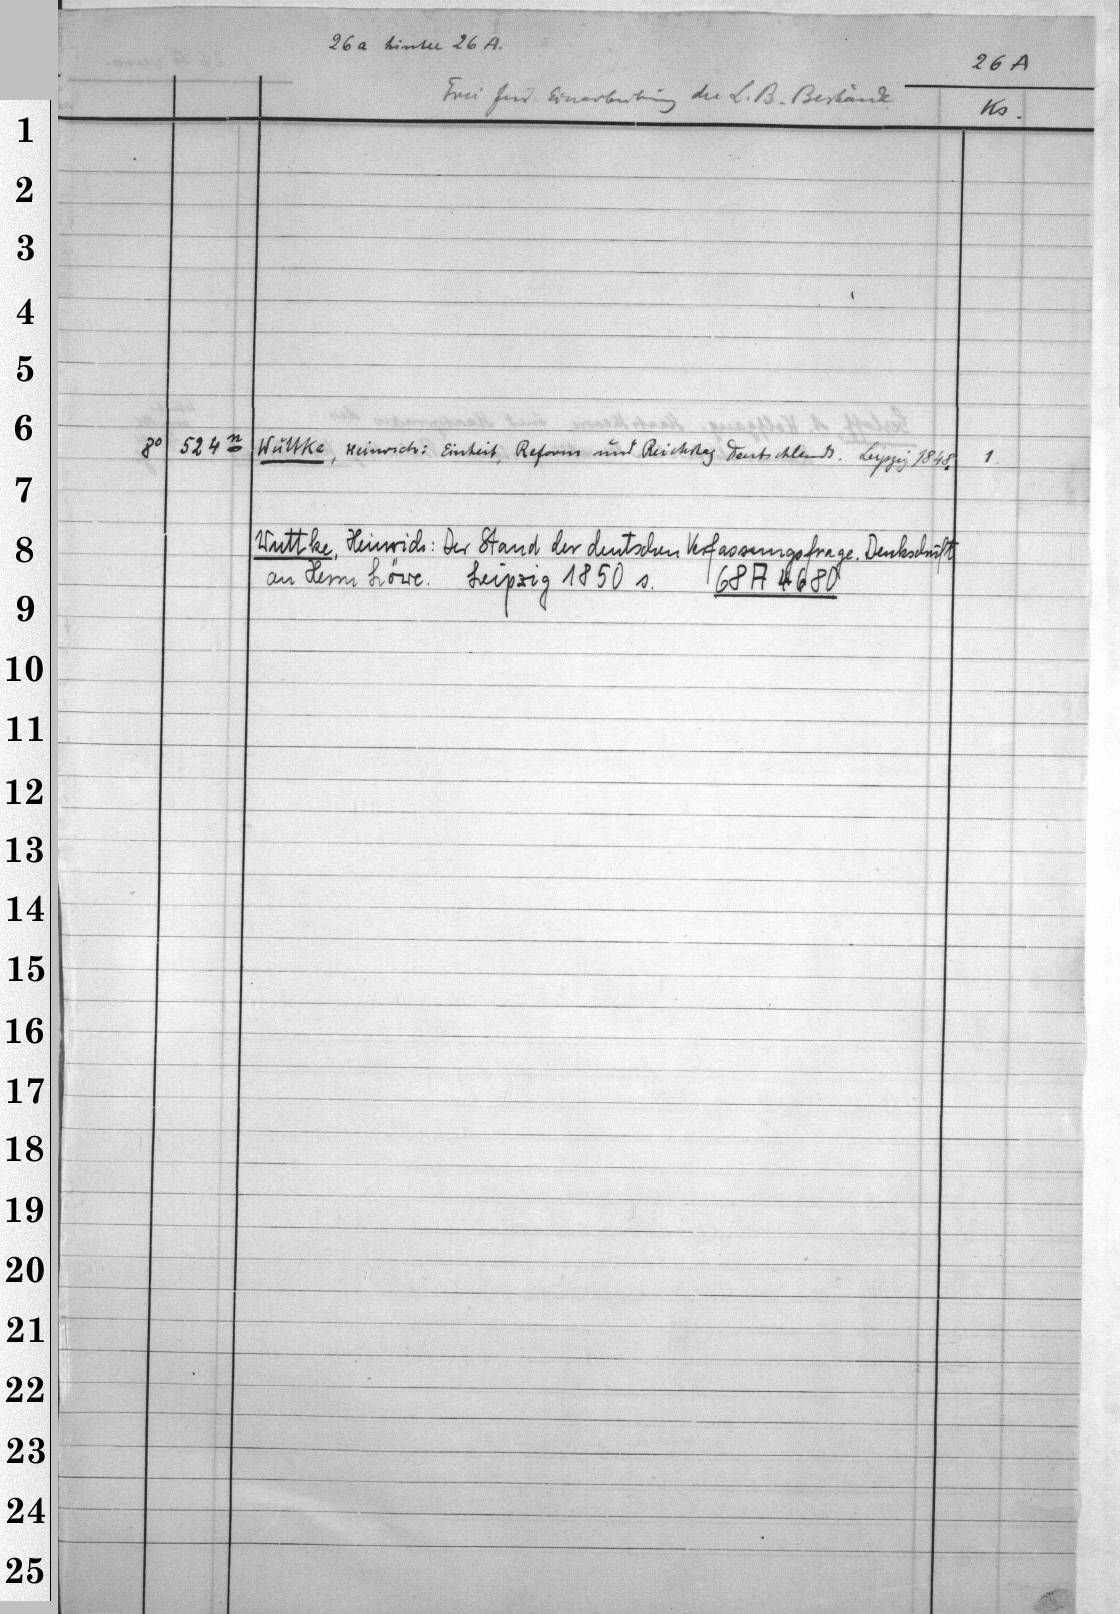 26a hinter 26 A.
26 A
Frei für Einarbeitung der L. B. Bestände
Ks.
1
2
3
4
5
6
8° 524 n Wuttke, Heinrich: Einheit, Reform und Reichstag Deutschlands. Leipzig 1848. 1.
7
8 Wuttke, Heinrich: Der Stand der deutschen Verfassungsfrage. Denkschrift
an Herrn Löwe. Leipzig 1850 s. 68 A 4680
9
10
11
12
13
14
15
16
17
18
19
20
21
22
23
24
25